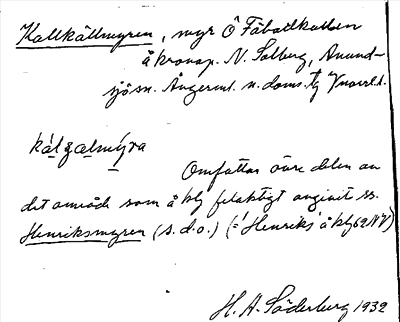 Kallkällmyren, myr Ö Fäbodkullen
å kronop. N. Solberg, Anund-
sjö sn. Ångerml. n. doms.
kálzælmýra
Omfattar övre delen av
det område som å kbl felaktigt angivit ss.
Henriksmyren (s.d.o.) (= 'Henriks' å kbl 62 NV)
H. A. Söderberg 1932